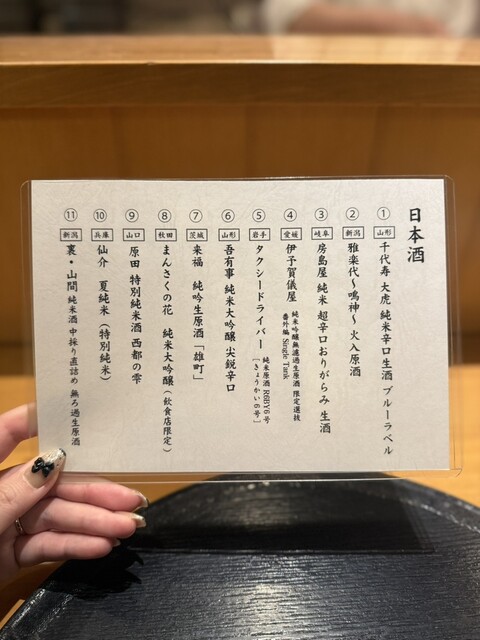 日本酒
① 山形 千代寿 大虎 純米辛口生酒 ブルーラベル
② 新潟 雅楽代〜鳴神〜 火入原酒
③ 岐阜 房島屋 純米 超辛口おりがらみ 生酒
④ 愛媛 伊予賀儀屋 純米吟醸無濾過生原酒 限定選抜
番外編 Single Tank
⑤ 岩手 タクシードライバー 純米原酒 R6BY6号
［きょうかい6号］
⑥ 山形 吾有事 純米大吟醸 尖鋭辛口
⑦ 茨城 来福 純吟生原酒「雄町」
⑧ 秋田 まんさくの花 純米大吟醸（飲食店限定）
⑨ 山口 原田 特別純米酒 西都の雫
⑩ 兵庫 仙介 夏純米（特別純米）
⑪ 新潟 裏・山間 純米酒 中採り直詰め 無ろ過生原酒